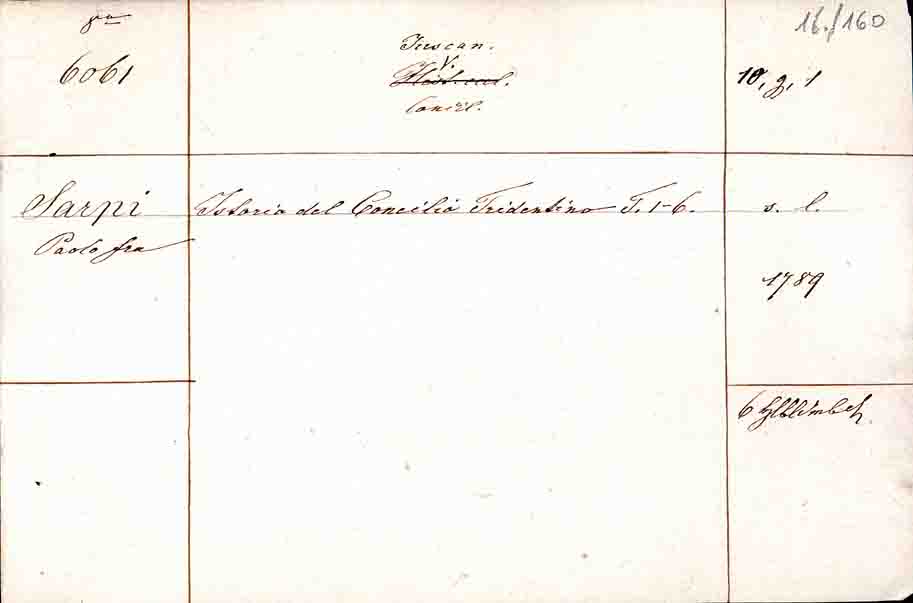 8va
6061
Tuscan.
V.
Hist. eccl.
Concil.
16./160
10, g, 1
Sarpi
Paolo fra
Istoria del Concilio Tridentino T. 1-6.
s. l.
1789
6